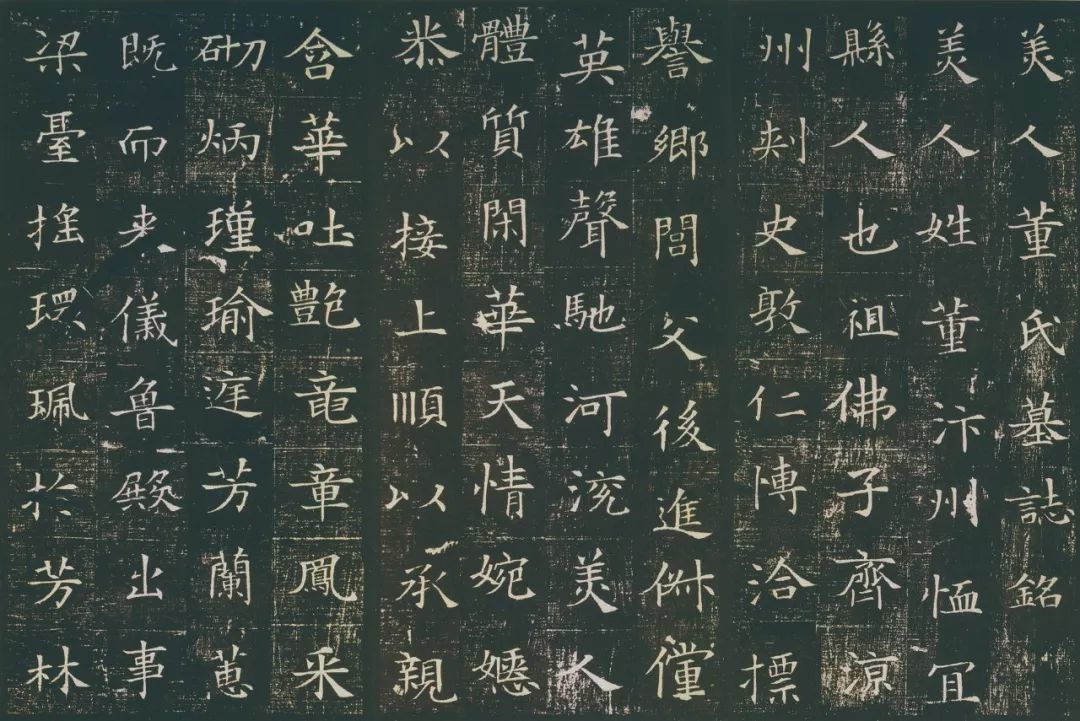 美人董氏墓誌銘
美人姓董汴州恤冝
縣人也祖佛子齊涼
州刺史敦仁愽洽摽
譽鄉閭父後進俶儻
英雄聲馳河渷美人
體質閑華天情婉嫕
恭以接上順以承親
含華吐艶竜章鳳采
砌炳瑾瑜庭芳蘭蕙
既而来儀魯殿出事
梁臺搖環珮於芳林